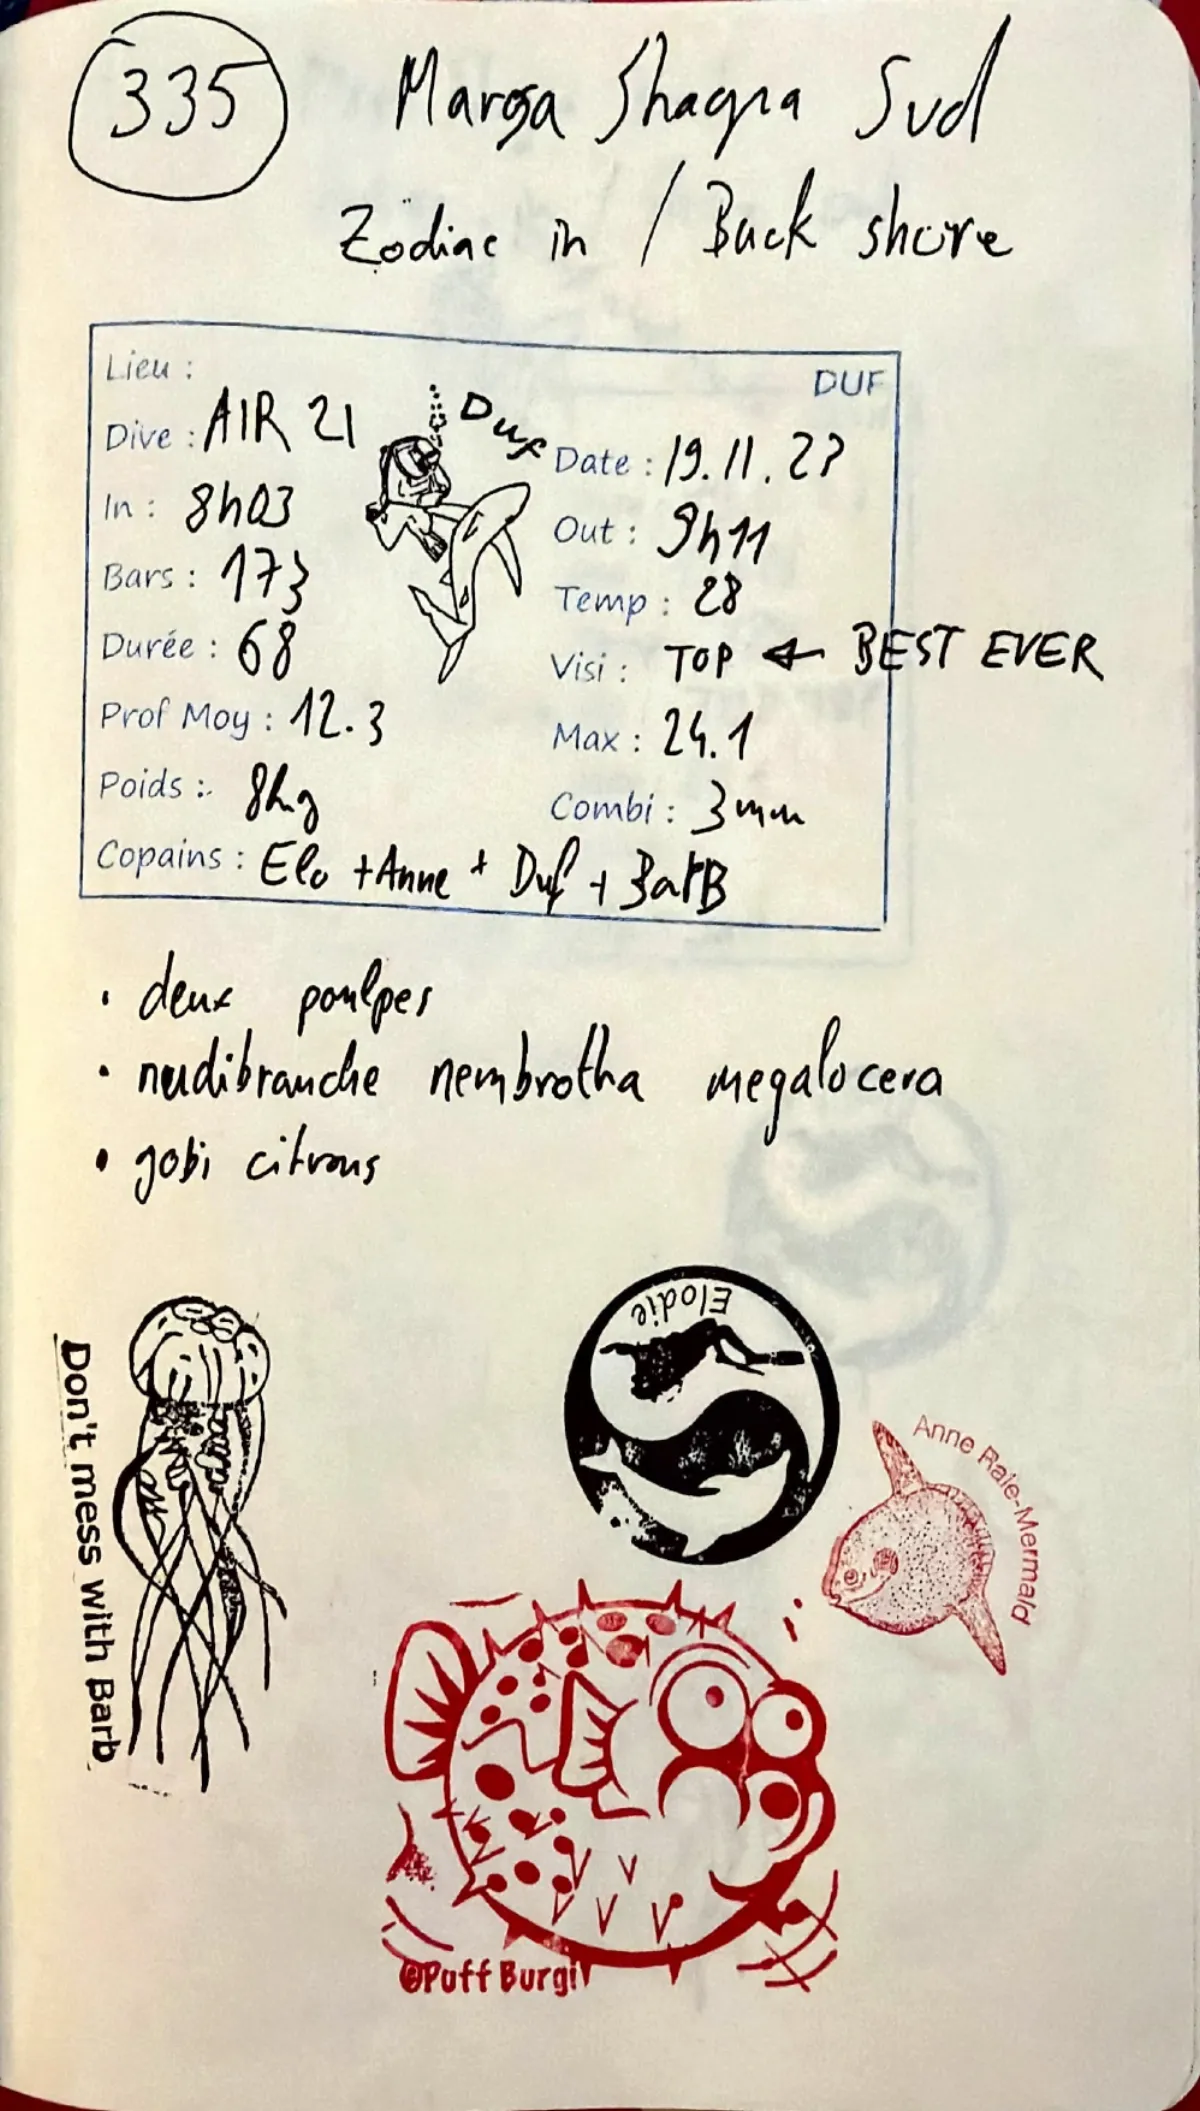 335
Marsa Shagra Sud
Zodiac in / Back shore
Lieu :
DUF
Dive : AIR 21
Duf
Date : 19.11.23
In : 8h03
Out : 9h11
Bars : 173
Temp : 28
Durée : 68
Visi : TOP ← BEST EVER
Prof Moy : 12.3
Max : 24.1
Poids : 8kg
Combi : 3mm
Copains : Elo + Anne + Duf + BarB
• deux poulpes
• nudibranche nembrotha megalocera
• gobi citrons
Don't mess with Barb
Elodie
Anne Raie-Mermald
©Puff Burgi